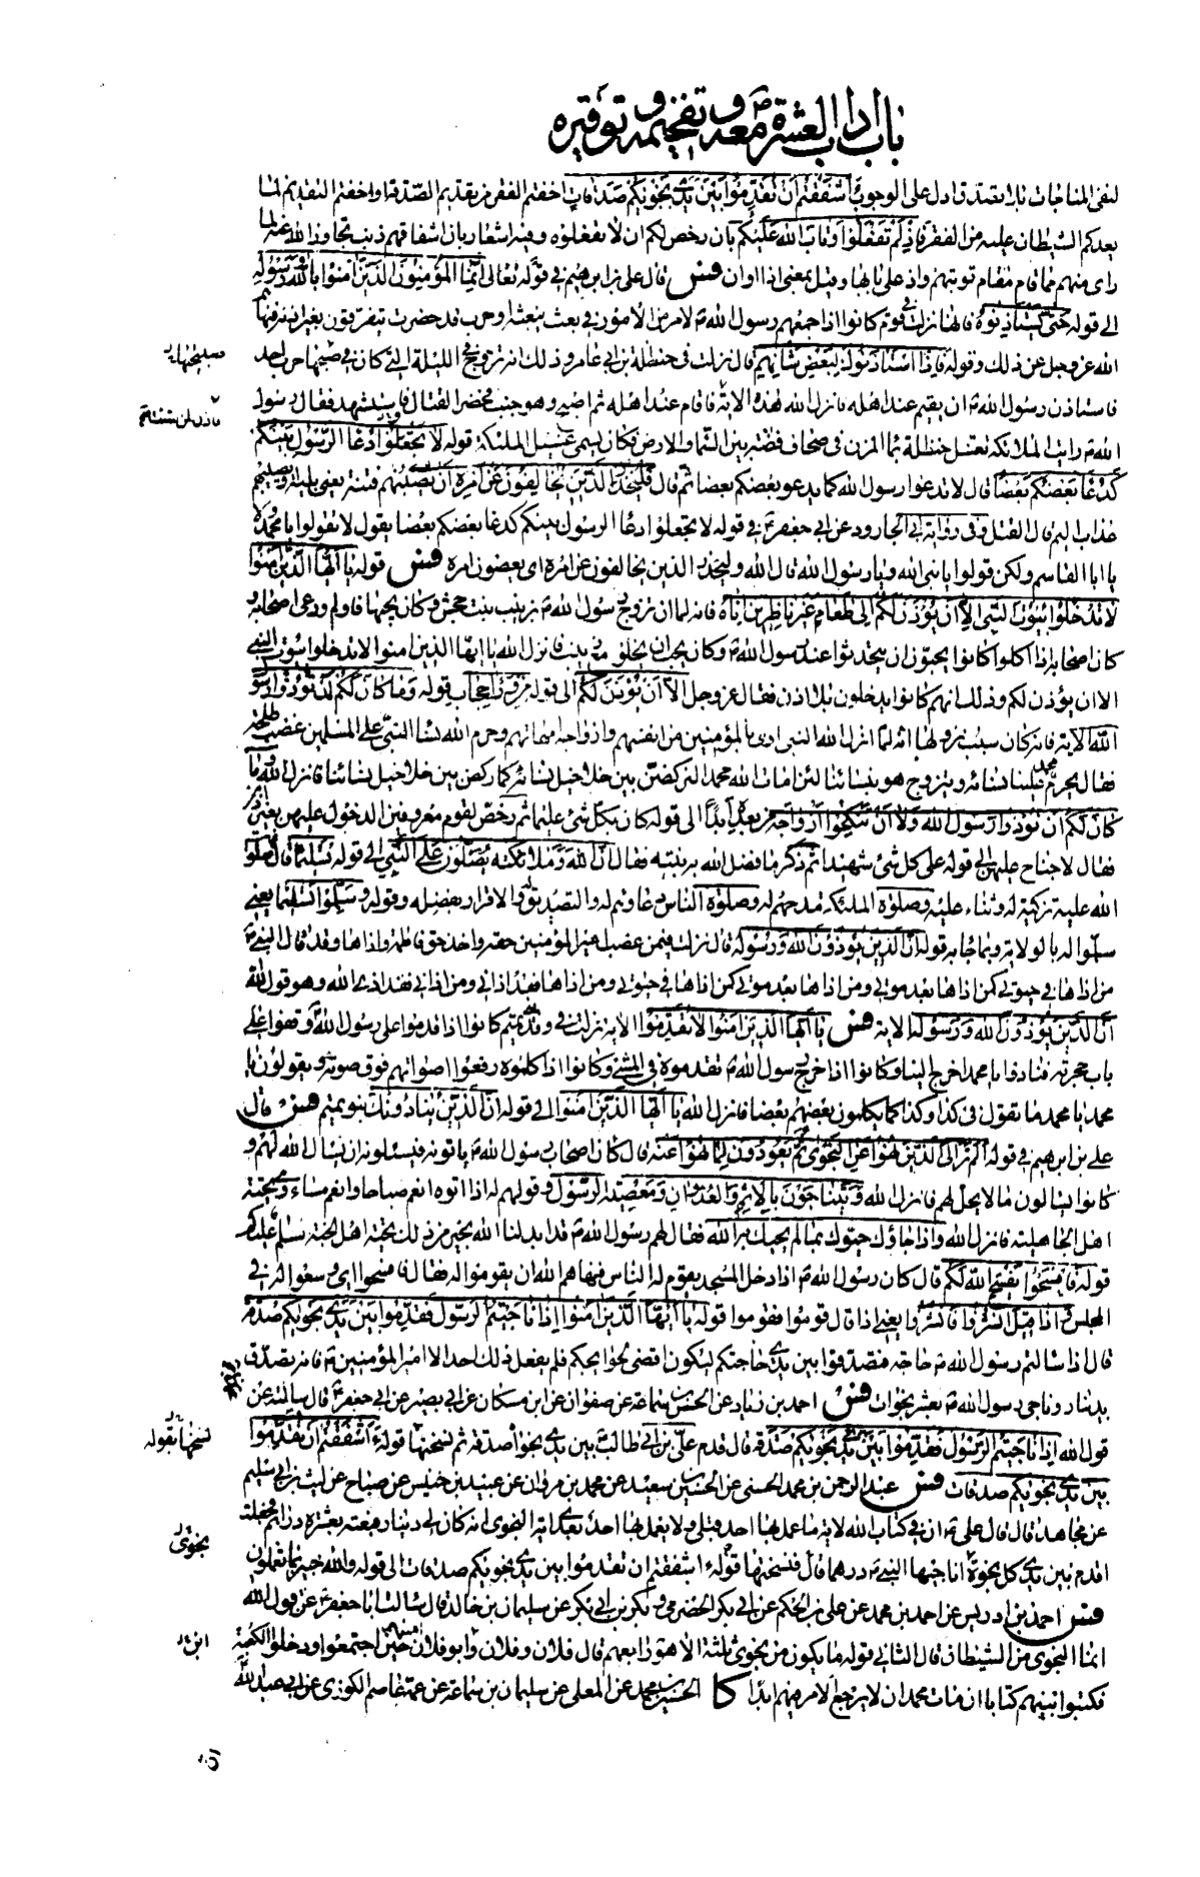 باب اداب العشرة معه و تفخيمه و توقيره
لنفى المناجات بلا تصدق ادل على الوجوب ءاشفقتم ان تقدموا بين يدى نجويكم صدقات اخفتم الفقر من تقديم الصدقة او اخفتم التقديم لما
يعدكم الشيطان عليه من الفقر فاذ لم تفعلوا وتاب الله عليكم بان رخص لكم ان لا تفعلوه وفيه اشعار بان اشفاقهم ذنب تجاوز الله عنه لما
راى منهم مما قام مقام توبتهم واذ على بابها وقيل بمعنى اذا او ان فس قال على بن ابرهيم فى قوله تعالى انما المؤمنون الذين امنوا بالله ورسوله
الى قوله حتى يستاذنوه فانها نزلت فى قوم كانوا اذا جمعهم رسول الله ص لامر من الامور فى بعث يبعثه او حرب قد حضرت يتفرقون بغير اذنه فنهاهم
الله عز وجل عن ذلك وقوله فاذا استاذنوك لبعض شانهم قال نزلت فى حنظلة بن ابى عامر وذلك انه تزوج فى الليلة التى كان فى صبيحتها حرب احد
فاستاذن رسول الله ص ان يقيم عند اهله فانزل الله هذه الاية فاقام عند اهله ثم اصبح وهو جنب فحضر القتال واستشهد فقال رسول
الله ص رايت الملائكة تغسل حنظلة بماء المزن فى صحاف فضة بين السماء والارض فكان يسمى غسيل الملئكة قوله لا تجعلوا دعاء الرسول بينكم
كدعاء بعضكم بعضا قال لا تدعوا رسول الله كما يدعو بعضكم بعضا ثم قال فليحذر الذين يخالفون عن امره ان تصيبهم فتنة يعنى بلية او يصيبهم
عذاب اليم قال القتل وفى رواية ابى الجارود عن ابى جعفر ع فى قوله لا تجعلوا دعاء الرسول بينكم كدعاء بعضكم بعضا يقول لا تقولوا يا محمد ولا
يا ابا القاسم ولكن قولوا يا نبى الله ويا رسول الله قال الله وليحذر الذين يخالفون عن امره اى يعصون امره فس قوله يا ايها الذين امنوا
لا تدخلوا بيوت النبى الا ان يؤذن لكم الى طعام غير ناظرين اناه فانه لما ان تزوج رسول الله ص بزينب بنت جحش وكان يحبها فاولم ودعا اصحابه و
كان اصحابه اذا اكلوا كانوا يحبون ان يتحدثوا عند رسول الله ص وكان يحب ان يخلو مع زينب فانزل الله يا ايها الذين امنوا لا تدخلوا بيوت النبى
الا ان يؤذن لكم وذلك انهم كانوا يدخلون بلا اذن فقال عز وجل الا ان يؤذن لكم الى قوله من وراء حجاب قوله وما كان لكم ان تؤذوا رسول
الله الاية فانه كان سبب نزولها انه لما انزل الله النبى اولى بالمؤمنين من انفسهم وازواجه امهاتهم وحرم الله نساء النبى على المسلمين غضب طلحة
فقال يحرم محمد علينا نسائه ويتزوج هو بنسائنا لئن امات الله محمدا لنركضن بين خلاخيل نسائه كما ركض بين خلاخيل نسائنا فانزل الله وما
كان لكم ان تؤذوا رسول الله ولا ان تنكحوا ازواجه من بعده ابدا الى قوله كان بكل شىء عليما ثم رخص لقوم معروفين الدخول عليهن بغير اذن
فقال لا جناح عليهن الى قوله على كل شىء شهيدا ثم ذكر ما فضل الله به نبيه فقال ان الله وملائكته يصلون على النبى الى قوله تسليما قال صلوة
الله عليه تزكية له وثناء عليه وصلوة الملئكة مدحهم له وصلوة الناس دعاؤهم له والتصديق والاقرار بفضله وقوله وسلموا تسليما يعنى
سلموا له بالولاية وبما جاء به قوله ان الذين يؤذون الله ورسوله قال نزلت فيمن غصب امير المؤمنين حقه واخذ حق فاطمة واذاها وقد قال النبى ص
من اذاها فى حيوتى كمن اذاها بعد موتى ومن اذاها بعد موتى كمن اذاها فى حيوتى ومن اذاها فقد اذانى ومن اذانى فقد اذى الله وهو قول الله
ان الذين يؤذون الله ورسوله الاية فس يا ايها الذين امنوا لا تقدموا الاية نزلت فى وفد تميم كانوا اذا قدموا على رسول الله ص وقفوا على
باب حجرته فنادوا يا محمد اخرج الينا وكانوا اذا خرج رسول الله ص تقدموه فى المشى وكانوا اذا كلموه رفعوا اصواتهم فوق صوته ويقولون يا
محمد يا محمد ما تقول فى كذا وكذا كما يكلمون بعضهم بعضا فانزل الله يا ايها الذين امنوا الى قوله ان الذين ينادونك بنو تميم فس قال
على بن ابرهيم فى قوله الم تر الى الذين نهوا عن النجوى ثم يعودون لما نهوا عنه قال كان اصحاب رسول الله ص ياتونه فيسئلونه ان يسال الله لهم و
كانوا يسالون ما لا يحل لهم فانزل الله ويتناجون بالاثم والعدوان ومعصية الرسول وقولهم له اذا اتوه انعم صباحا وانعم مساء وهى تحية
اهل الجاهلية فانزل الله واذا جاؤك حيوك بما لم يحيك به الله فقال لهم رسول الله ص قد ابدلنا الله بخير من ذلك تحية اهل الجنة السلام عليكم
قوله فافسحوا يفسح الله لكم قال كان رسول الله ص اذا دخل المسجد يقوم له الناس فنهاهم الله ان يقوموا له فقال فافسحوا اى وسعوا له فى
المجلس واذا قيل انشزوا فانشزوا يعنى اذا قال قوموا فقوموا قوله يا ايها الذين امنوا اذا ناجيتم الرسول فقدموا بين يدى نجويكم صدقة
قال اذا سالتم رسول الله ص حاجة فتصدقوا بين يدى حاجتكم ليكون اقضى لحوائجكم فلم يفعل ذلك احد الا امير المؤمنين ع فانه تصدق
بدينار وناجى رسول الله ص بعشر نجوات فس احمد بن زياد عن الحسن بن سماعة عن صفوان عن ابن مسكان عن ابى بصير عن ابى جعفر ع قال سالته عن
قول الله اذا ناجيتم الرسول فقدموا بين يدى نجويكم صدقة قال قدم على بن ابى طالب ع بين يدى نجواه صدقة ثم نسختها قوله ءاشفقتم ان تقدموا
بين يدى نجويكم صدقات فس عبد الرحمن بن محمد الحسنى عن الحسين بن سعيد عن محمد بن مروان عن عبيد بن خنيس عن صباح عن ليث بن ابى سليم
عن مجاهد قال قال على ع ان فى كتاب الله لاية ما عمل بها احد قبلى ولا يعمل بها احد بعدى اية النجوى انه كان لى دينار فبعته بعشرة دراهم فجعلت
اقدم بين يدى كل نجوة اناجيها النبى ص درهما قال فنسختها قوله ءاشفقتم ان تقدموا بين يدى نجويكم صدقات الى قوله والله خبير بما تعملون
فس احمد بن ادريس عن احمد بن محمد عن على بن الحكم عن ابى بكر الحضرمى وبكر بن ابى بكر عن سليمان بن خالد قال سالت ابا جعفر ع عن قول الله
انما النجوى من الشيطان قال الثانى قوله ما يكون من نجوى ثلثة الا هو رابعهم قال فلان وفلان وابو فلان امينهم حين اجتمعوا ودخلوا الكعبة
فكتبوا بينهم كتابا ان مات محمد ان لا يرجع الامر فيهم ابدا كا الحسين بن محمد عن المعلى عن سليمان بن سماعة عن عمه عاصم الكوزى عن ابى عبد الله
صبيحتها
نسختها بقوله
نجوى
ابن